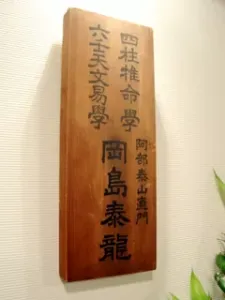 四柱推命學
六壬天文易學
阿部泰山直門
岡島泰龍